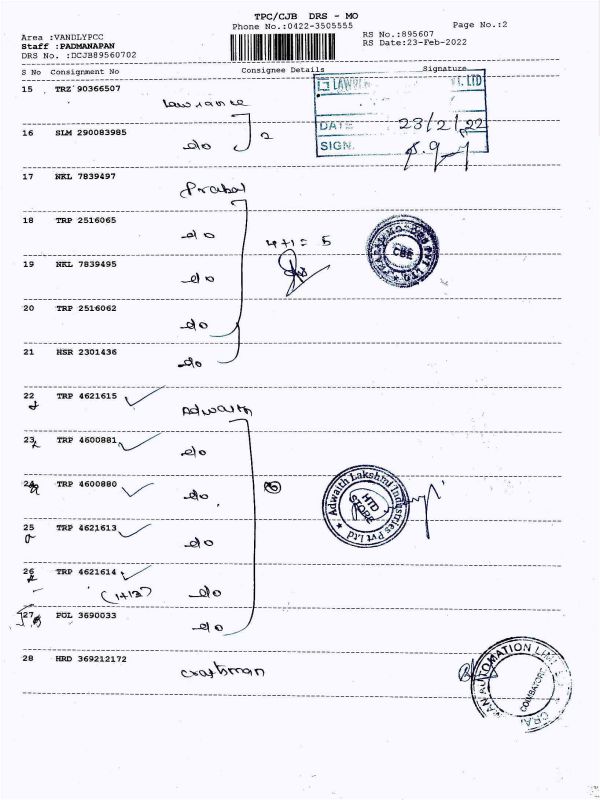 TPC/CJB DRS - MO
Phone No.:0422-3505555
Page No.:2
Area :VANDLYPCC
RS No.:895607
Staff :PADMANAPAN
RS Date:23-Feb-2022
DRS No. :DCJB89560702
S No Consignment No Consignee Details Signature
15 TRZ 90366507
LAWREN LTD
16 SLM 290083985 do 2
DATE 23/2/22
SIGN.
17 NKL 7839497
18 TRP 2516065 do
4+1= 5
CBE
19 NKL 7839495 do
20 TRP 2516062 do
21 HSR 2301436 do
22 TRP 4621615 Adwaith
23 TRP 4600881 do
24 TRP 4600880 do 6
Adwaith Lakshmi Industries Pvt Ltd
HTD STORE
25 TRP 4621613 do
26 TRP 4621614 do
27 POL 3690033 do
28 HRD 369212172 craftsman
AUTOMATION LIMITED
COIMBATORE